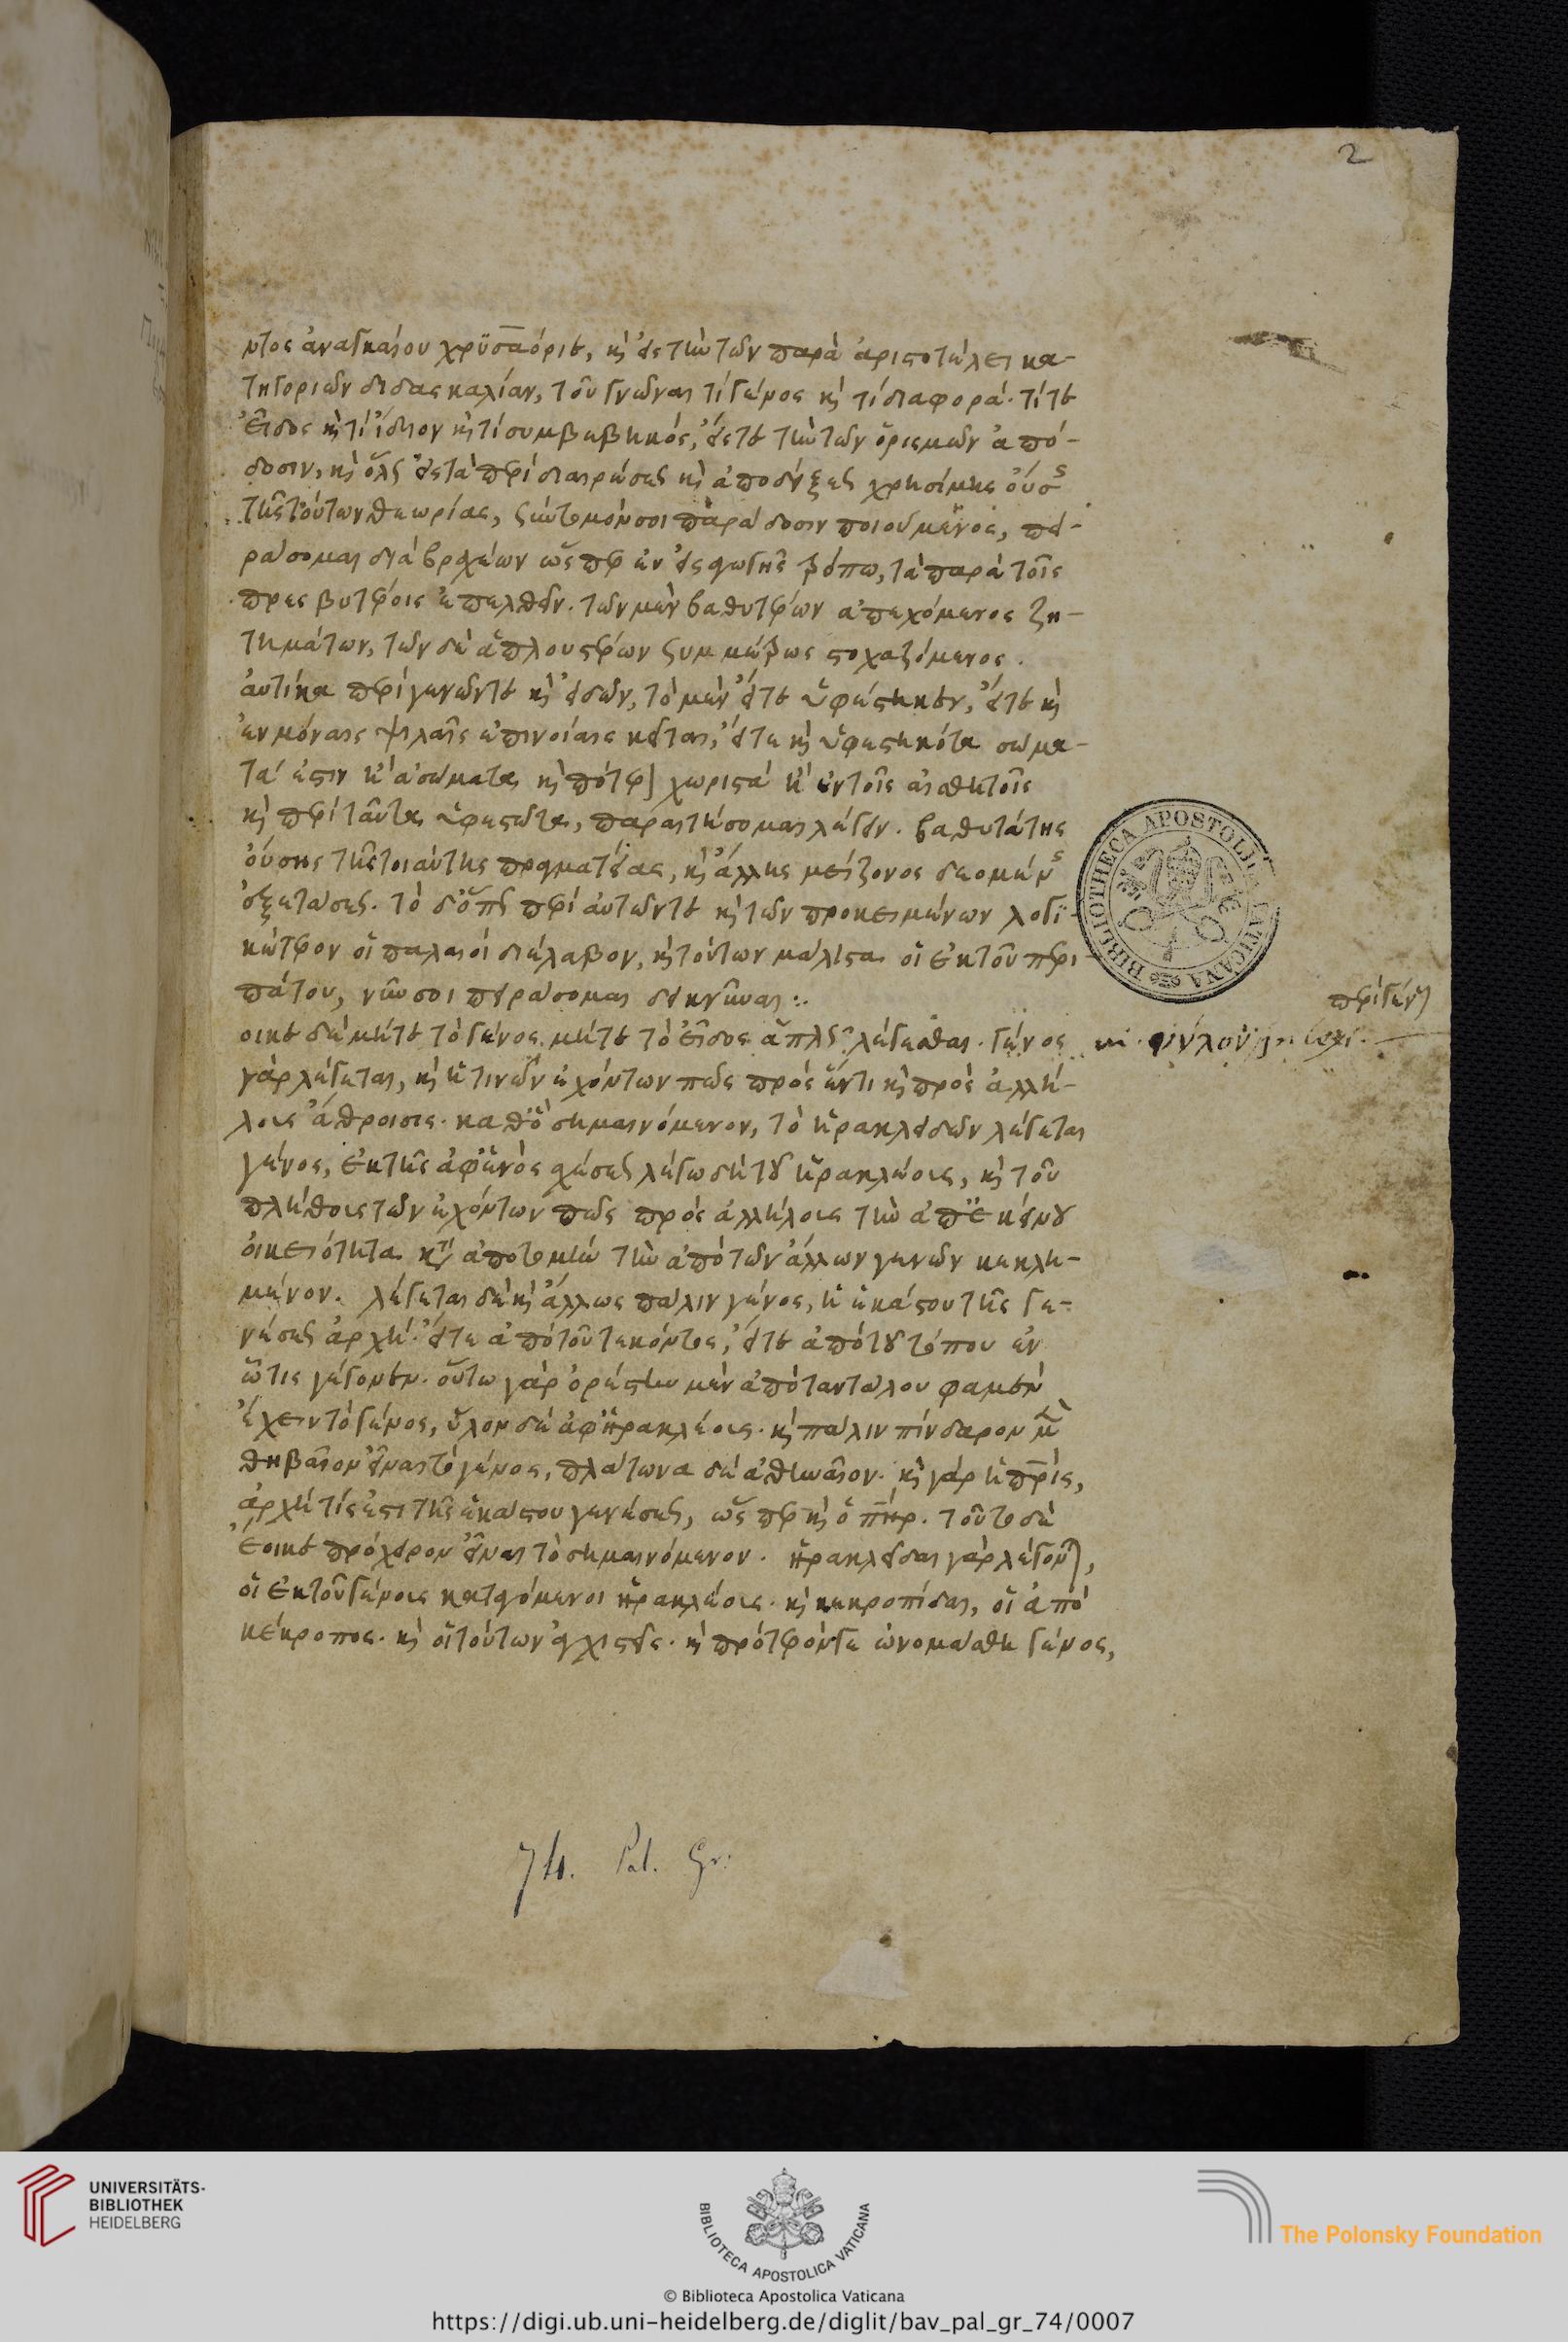 2
ντος ἀναγκαίου χρυσαόριε, κὶ εἰς τὴν τῶν παρὰ ἀριστοτέλει κα-
τηγοριῶν διδασκαλίαν, τοῦ γνῶναι τί γένος κὶ τί διαφορά· τί τε
εἶδος κὶ τί ἴδιον κὶ τί συμβεβηκός, εἴς τε τὴν τῶν ὁρισμῶν ἀπό-
δοσιν, κὶ ὅλως εἰς τὰ περὶ διαιρέσεως κὶ ἀποδείξεως χρησίμης οὔσης
τῆς τούτων θεωρίας, σύντομόν σοι παράδοσιν ποιούμενος, πει-
ράσομαι διὰ βραχέων ὥσπερ ἐν εἰσαγωγῆς τρόπω, τὰ παρὰ τοῖς
πρεσβυτέροις ἐπελθεῖν· τῶν μὲν βαθυτέρων ἀπεχόμενος ζη-
τημάτων, τῶν δὲ ἁπλουστέρων συμμέτρως στοχαζόμενος.
αὐτίκα περὶ γενῶν τε κὶ εἰδῶν, τὸ μὲν εἴτε ὑφέστηκεν, εἴτε κὶ
ἐν μόναις ψιλαῖς ἐπινοίαις κεῖται, εἴτε κὶ ὑφεστηκότα σώμα-
τά ἐστιν ἢ ἀσώματα κὶ πότερον χωριστὰ ἢ ἐν τοῖς αἰσθητοῖς
κὶ περὶ ταῦτα ὑφεστῶτα, παραιτήσομαι λέγειν· βαθυτάτης
οὔσης τῆς τοιαύτης πραγματείας, κὶ ἄλλης μείζονος δεομένης
ἐξετάσεως· τὸ δ' ὅπως περὶ αὐτῶν τε κὶ τῶν προκειμένων λογι-
κώτερον οἱ παλαιοὶ διέλαβον, κὶ τούτων μάλιστα οἱ ἐκ τοῦ περι-
πάτου, νῦν σοι πειράσομαι δεικνύναι :.
περὶ γένους
οικε δὲ μήτε τὸ γένος μήτε τὸ εἶδος ἁπλῶς λέγεσθαι· γένος
γὰρ λέγεται, κὶ ἡ τινῶν ἐχόντων πως πρὸς ἕν τι κὶ πρὸς ἀλλή-
λους ἄθροισις· καθ' ὃ σημαινόμενον, τὸ ἡρακλειδῶν λέγεται
γένος, ἐκ τῆς ἀφ' ἑνὸς σχέσεως λέγω δὴ τοῦ ἡρακλέους, κὶ τοῦ
πλήθους τῶν ἐχόντων πως πρὸς ἀλλήλους τὴν ἀπ' ἐκείνου
οἰκειότητα κατὰ ἀποτομὴν τὴν ἀπὸ τῶν ἄλλων γενῶν κεκλη-
μένον. λέγεται δὲ κὶ ἄλλως πάλιν γένος, ἡ ἑκάστου τῆς γε-
νέσεως ἀρχὴ· εἴτε ἀπὸ τοῦ τεκόντος, εἴτε ἀπὸ τοῦ τόπου ἐν
ὧ τις γέγονεν· οὕτω γὰρ ὀρέστην μὲν ἀπὸ ταντάλου φαμὲν
ἔχειν τὸ γένος, ὕλον δὲ ἀφ' ἡρακλέους· κὶ πάλιν πίνδαρον μὲν
θηβαῖον εἶναι τὸ γένος, πλάτωνα δὲ ἀθηναῖον· κὶ γὰρ ἡ πρὶς,
ἀρχή τίς ἐστι τῆς ἑκάστου γενέσεως, ὥσπερ κὶ ὁ πηρ. τοῦτο δὲ
ἔοικε πρόχειρον εἶναι τὸ σημαινόμενον. ἡρακλεῖδαι γὰρ λέγονται,
οἱ ἐκ τοῦ γένους καταγόμενοι ἡρακλέους· κὶ κεκροπίδαι, οἱ ἀπὸ
κέκροπος· κὶ οἱ τούτων ἀγχιστεῖς· κὶ πρότερόν γε ὠνομάσθη γένος,
74. Pal. Gr.
BIBLIOTHECA APOSTOLICA VATICANA
UNIVERSITÄTS-
BIBLIOTHEK
HEIDELBERG
BIBLIOTECA APOSTOLICA VATICANA
The Polonsky Foundation
© Biblioteca Apostolica Vaticana
https://digi.ub.uni-heidelberg.de/diglit/bav_pal_gr_74/0007